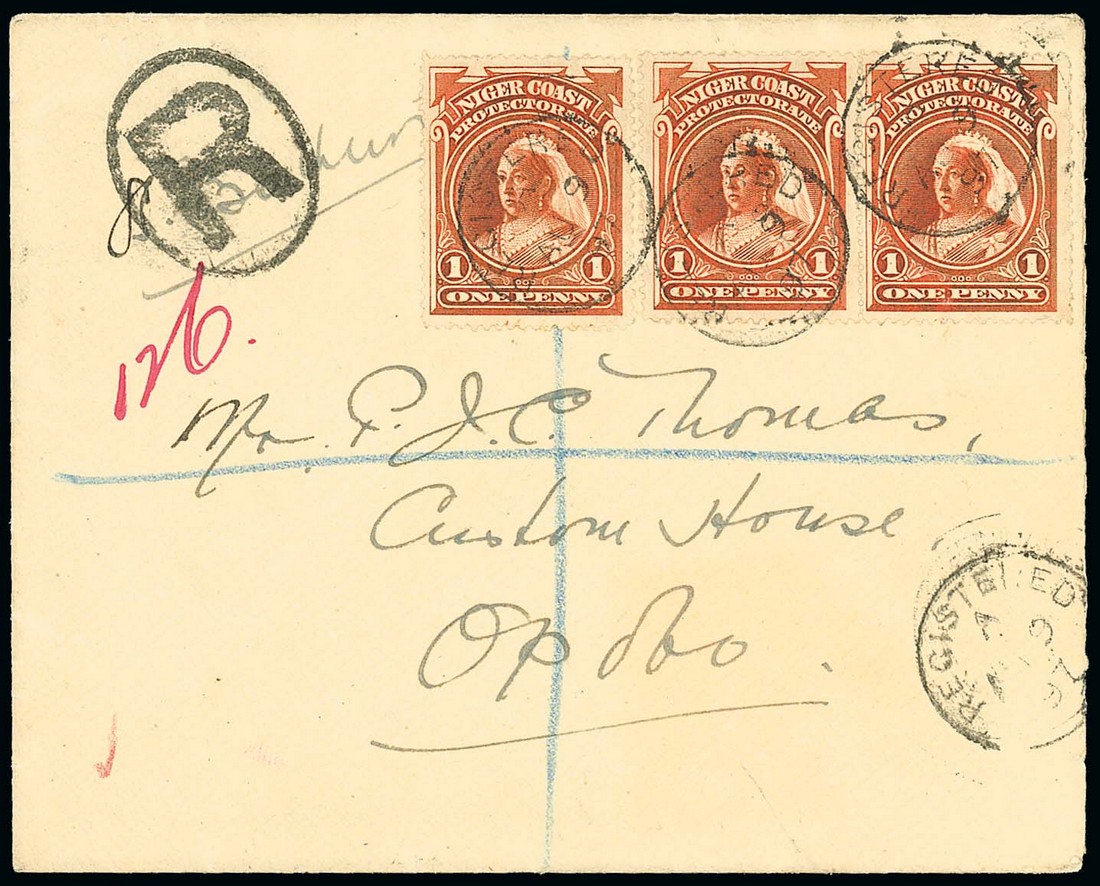 R
8
126.
NIGER COAST
PROTECTORATE
1 1
ONE PENNY
NIGER COAST
PROTECTORATE
1 1
ONE PENNY
NIGER COAST
PROTECTORATE
1 1
ONE PENNY
Mr. P. J. C. Thomas,
Custom House
Opobo.
REGISTERED